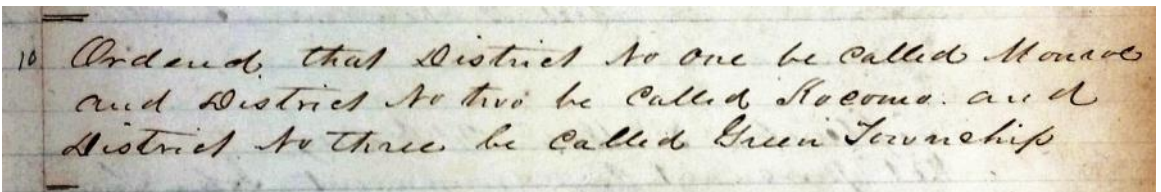 10 Ordered. that District No one be called Monroe
and District No two be called Kocomo. and
District No three be called Green Township